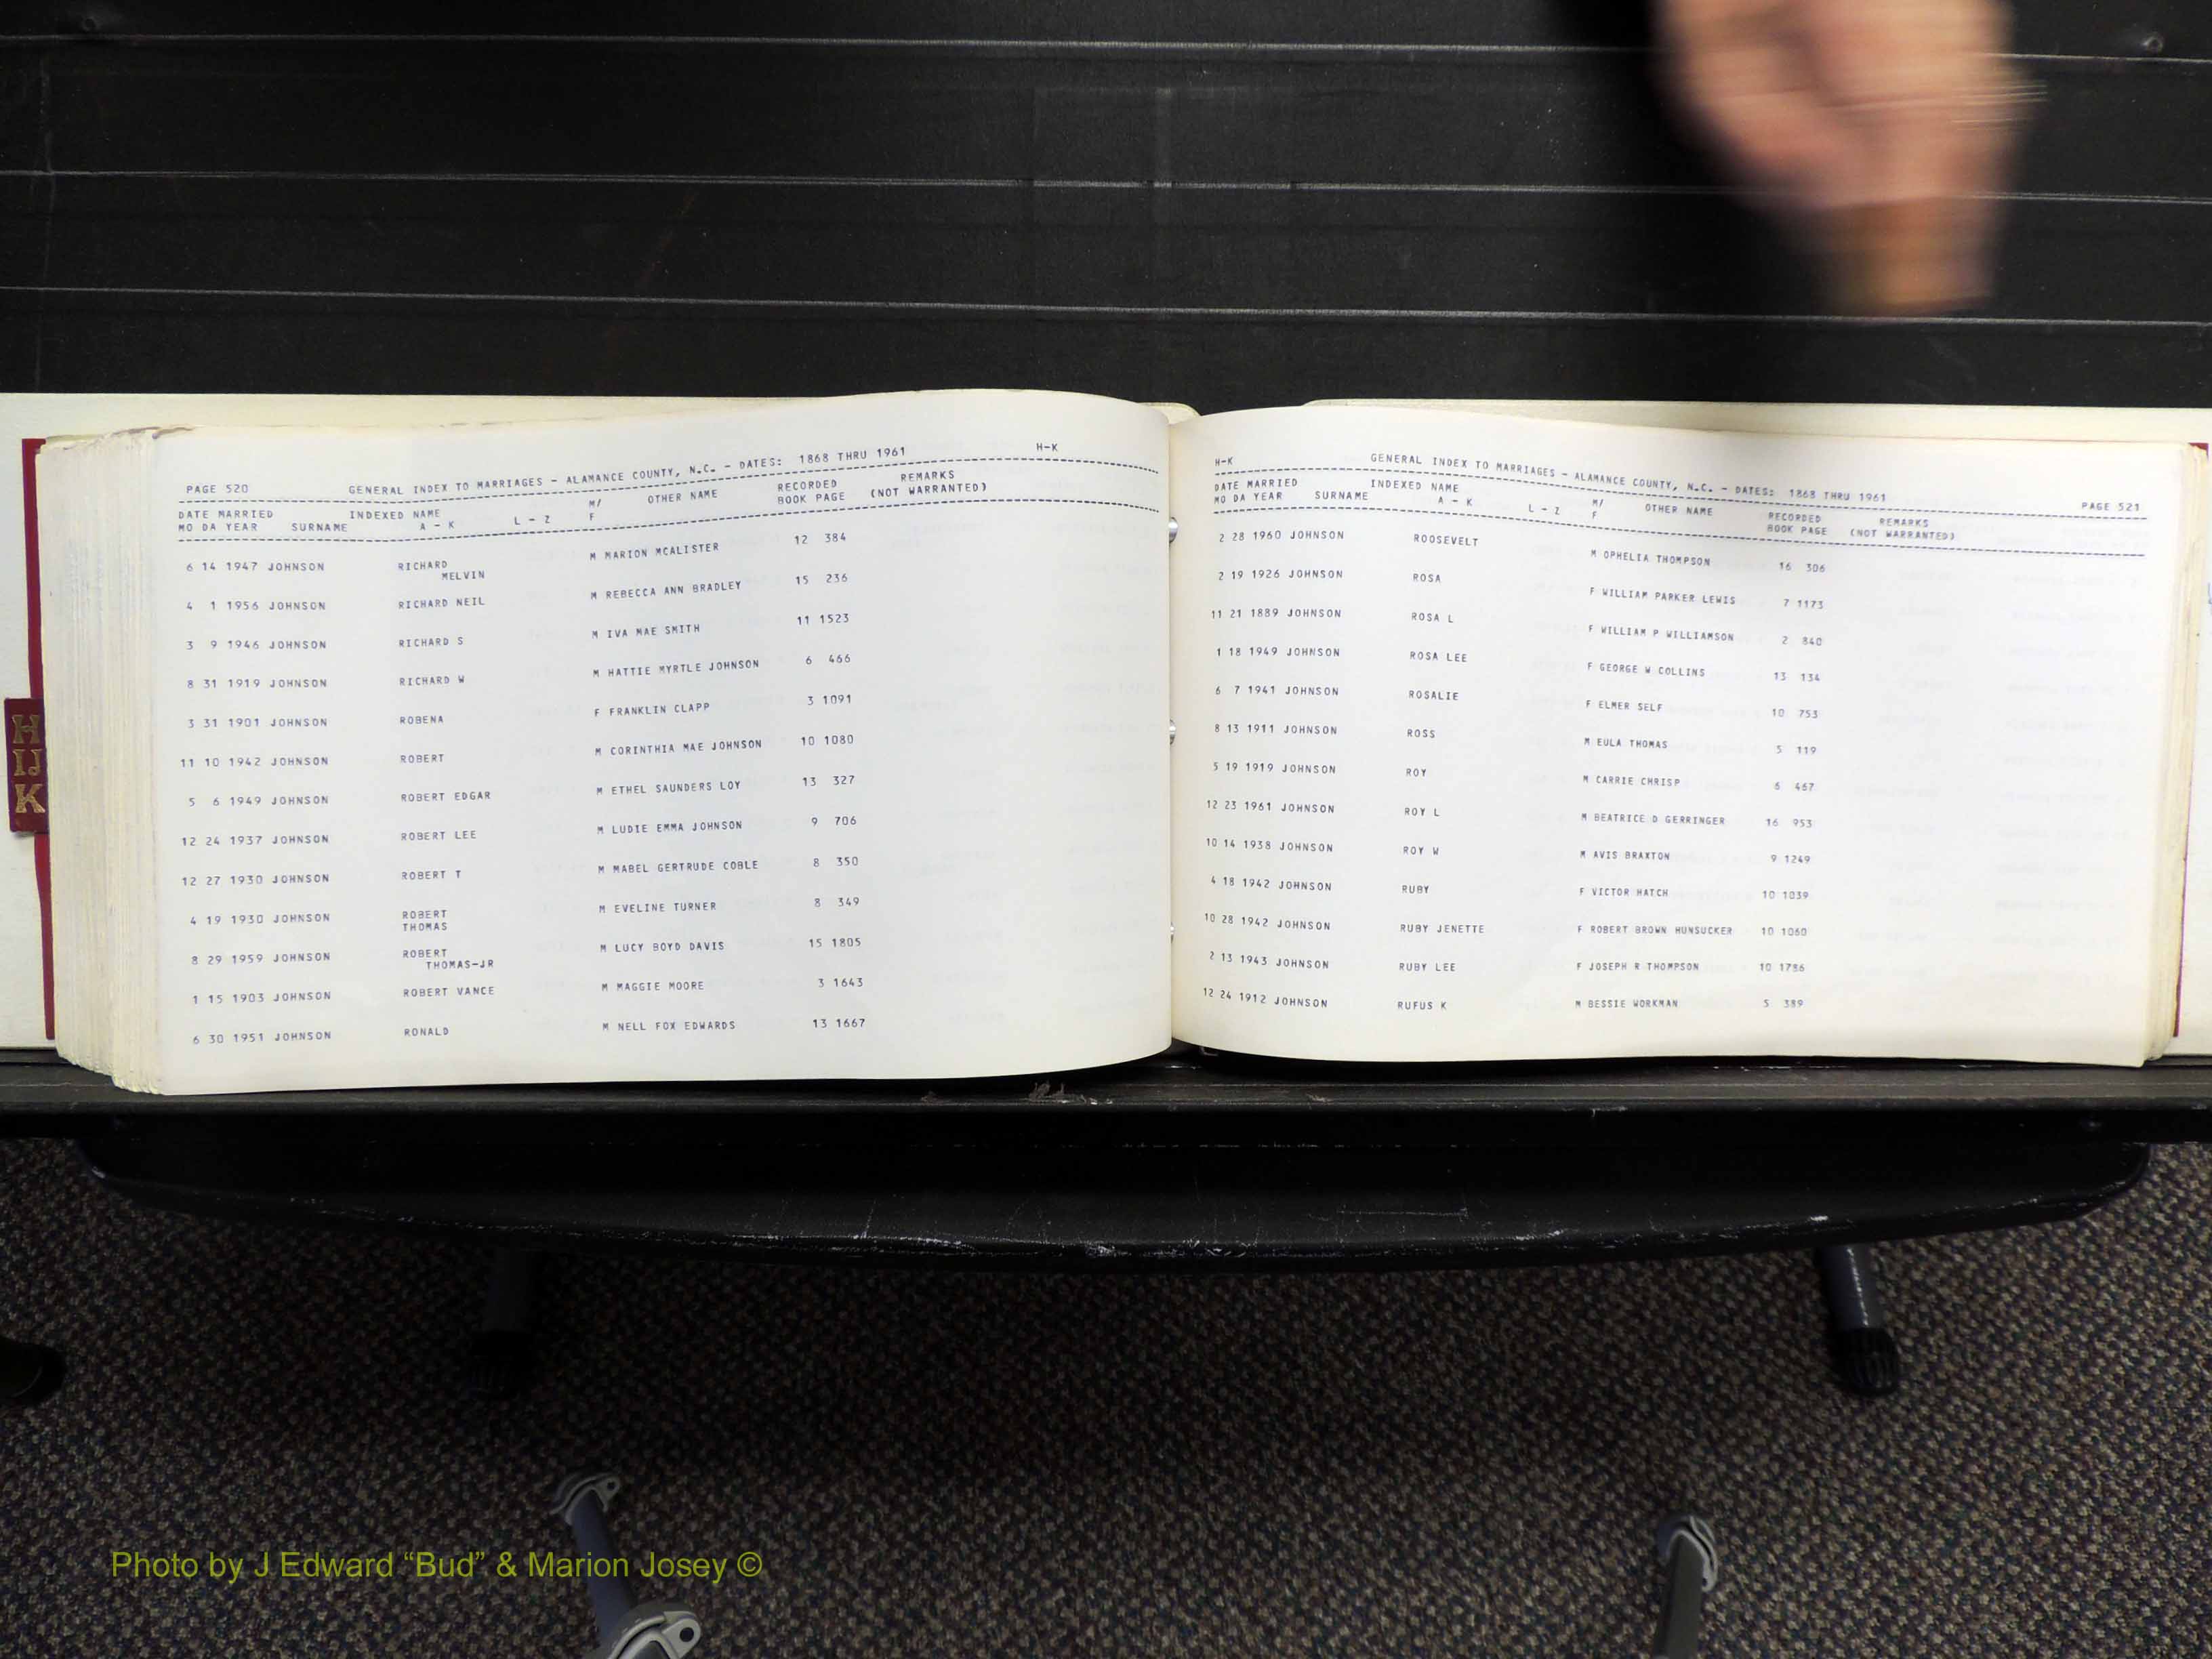 PAGE 520 GENERAL INDEX TO MARRIAGES - ALAMANCE COUNTY, N.C. - DATES: 1868 THRU 1961 H-K
DATE MARRIED INDEXED NAME M/ OTHER NAME RECORDED REMARKS
MO DA YEAR SURNAME A - K L - Z F BOOK PAGE (NOT WARRANTED)
6 14 1947 JOHNSON RICHARD M MARION MCALISTER 12 384
MELVIN
4 1 1956 JOHNSON RICHARD NEIL M REBECCA ANN BRADLEY 15 236
3 9 1946 JOHNSON RICHARD S M IVA MAE SMITH 11 1523
8 31 1919 JOHNSON RICHARD W M HATTIE MYRTLE JOHNSON 6 466
3 31 1901 JOHNSON ROBENA F FRANKLIN CLAPP 3 1091
11 10 1942 JOHNSON ROBERT M CORINTHIA MAE JOHNSON 10 1080
5 6 1949 JOHNSON ROBERT EDGAR M ETHEL SAUNDERS LOY 13 327
12 24 1937 JOHNSON ROBERT LEE M LUDIE EMMA JOHNSON 9 706
12 27 1930 JOHNSON ROBERT T M MABEL GERTRUDE COBLE 8 350
4 19 1930 JOHNSON ROBERT M EVELINE TURNER 8 349
THOMAS
8 29 1959 JOHNSON ROBERT M LUCY BOYD DAVIS 15 1805
THOMAS-JR
1 15 1903 JOHNSON ROBERT VANCE M MAGGIE MOORE 3 1643
6 30 1951 JOHNSON RONALD M NELL FOX EDWARDS 13 1667
H-K GENERAL INDEX TO MARRIAGES - ALAMANCE COUNTY, N.C. - DATES: 1868 THRU 1961 PAGE 521
DATE MARRIED INDEXED NAME M/ OTHER NAME RECORDED REMARKS
MO DA YEAR SURNAME A - K L - Z F BOOK PAGE (NOT WARRANTED)
2 28 1960 JOHNSON ROOSEVELT M OPHELIA THOMPSON 16 306
2 19 1926 JOHNSON ROSA F WILLIAM PARKER LEWIS 7 1173
11 21 1889 JOHNSON ROSA L F WILLIAM P WILLIAMSON 2 840
1 18 1949 JOHNSON ROSA LEE F GEORGE W COLLINS 13 134
6 7 1941 JOHNSON ROSALIE F ELMER SELF 10 753
8 13 1911 JOHNSON ROSS M EULA THOMAS 5 119
5 19 1919 JOHNSON ROY M CARRIE CHRISP 6 467
12 23 1961 JOHNSON ROY L M BEATRICE D GERRINGER 16 953
10 14 1938 JOHNSON ROY W M AVIS BRAXTON 9 1249
4 18 1942 JOHNSON RUBY F VICTOR HATCH 10 1039
10 28 1942 JOHNSON RUBY JENETTE F ROBERT BROWN HUNSUCKER 10 1060
2 13 1943 JOHNSON RUBY LEE F JOSEPH R THOMPSON 10 1786
12 24 1912 JOHNSON RUFUS K M BESSIE WORKMAN 5 389
H
IJ
K
Photo by J Edward “Bud” & Marion Josey ©